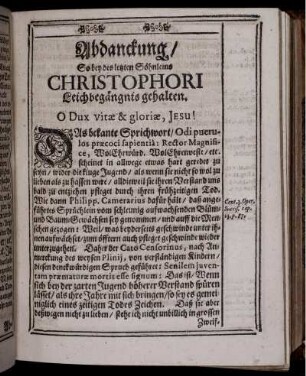 Abdanckung/
So bey des letzten Söhnleins
CHRISTOPHORI
Leichbegängnis gehalten.
O Dux vitæ & gloriæ, JESU!
DAs bekante Sprichwort/ Odi pueru-
los præcoci sapientiâ: Rector Magnifi-
ce, WolEhrwürd. WolEhrenveste/ etc.
scheinet in allwege etwas hart geredet zu
seyn/ wider die kluge Jugend/ als wenn sie nicht so wol zu
lieben als zu hassen wäre/ allbieweil sie ihrem Verstand uns
bald zu entziehen pfleget durch ihren frühzeitigen Tod.
Wie dann Philipp. Camerarius dafür hält/ daß ange-
führtes Sprüchlein vom schleunig aufwachsenden Bäum-
und Baum-Gewächsen sey genommen/ und auff die Men-
schen gezogen: Weil/ was bey derseits geschwinde unter ih-
nen aufwächset/ zum öfftern auch pfleget geschwinde wieder
unterzugehen. Daher der Cato Censorinus, nach An-
merckung des weysen Plinij, von verständigen Kindern/
diesen denckwürdigen Spruch geführet: Senilem juven-
tam præmaturæ mortis esse signum: Das ist/ Wenn
sich bey der zarten Jugend höherer Verstand spüren
lässet/ als ihre Jahre mit sich bringen/ so sey es gemei-
niglich eines zeitigen Todes Zeichen. Daß sie aber
deßwegen nicht zu lieben/ stehe ich nicht unbillich in grossen
Zweif-